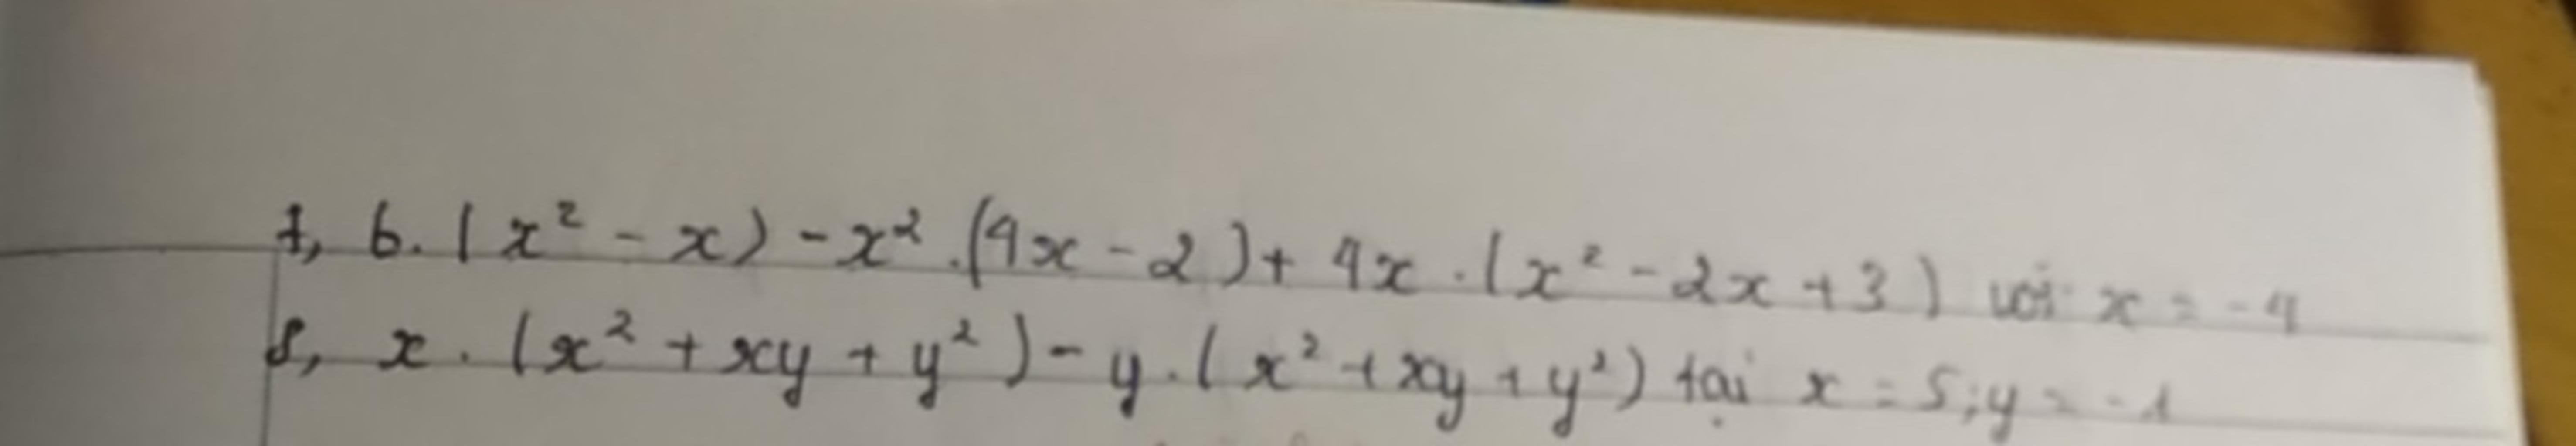 7, 6.(x² - x) - x².(4x - 2) + 4x.(x² - 2x + 3) với x = -4
8, x.(x² + xy + y²) - y.(x² + xy + y²) tại x = 5; y = -1